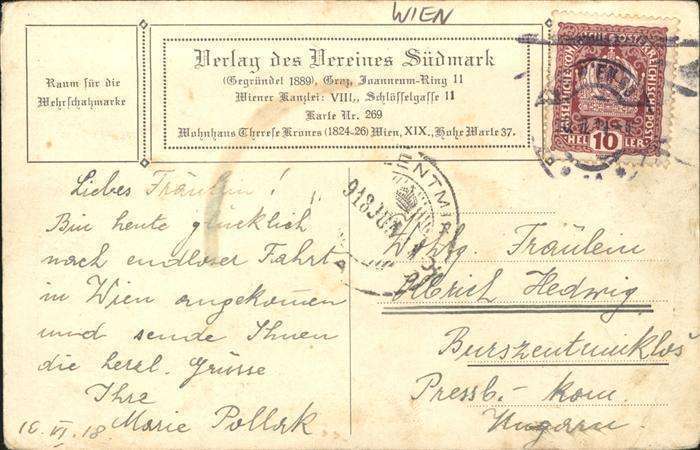 WIEN
Raum für die
Wehrschatzmarke
Verlag des Vereines Südmark
(Gegründet 1889), Graz, Joanneum-Ring 11
Wiener Kanzlei: VIII., Schlösselgasse 11
Karte Nr. 269
Wohnhaus Therese Krones (1824-26) Wien, XIX., Hohe Warte 37.
KAISERLICHE KÖN ÖSTERREICHISCHE POST
HELLER 10
WIEN
Liebes Fräulein!
Bin heute glücklich
nach endloser Fahrt
in Wien angekommen
und sende Ihnen
die herzl. Grüsse
Ihre
Marie Pollak
16. VI. 18
ENTMI
918 JU
Fräulein
Olbrich Hedwig
Burszentmiklós
Pressb.- kom.
Ungarn